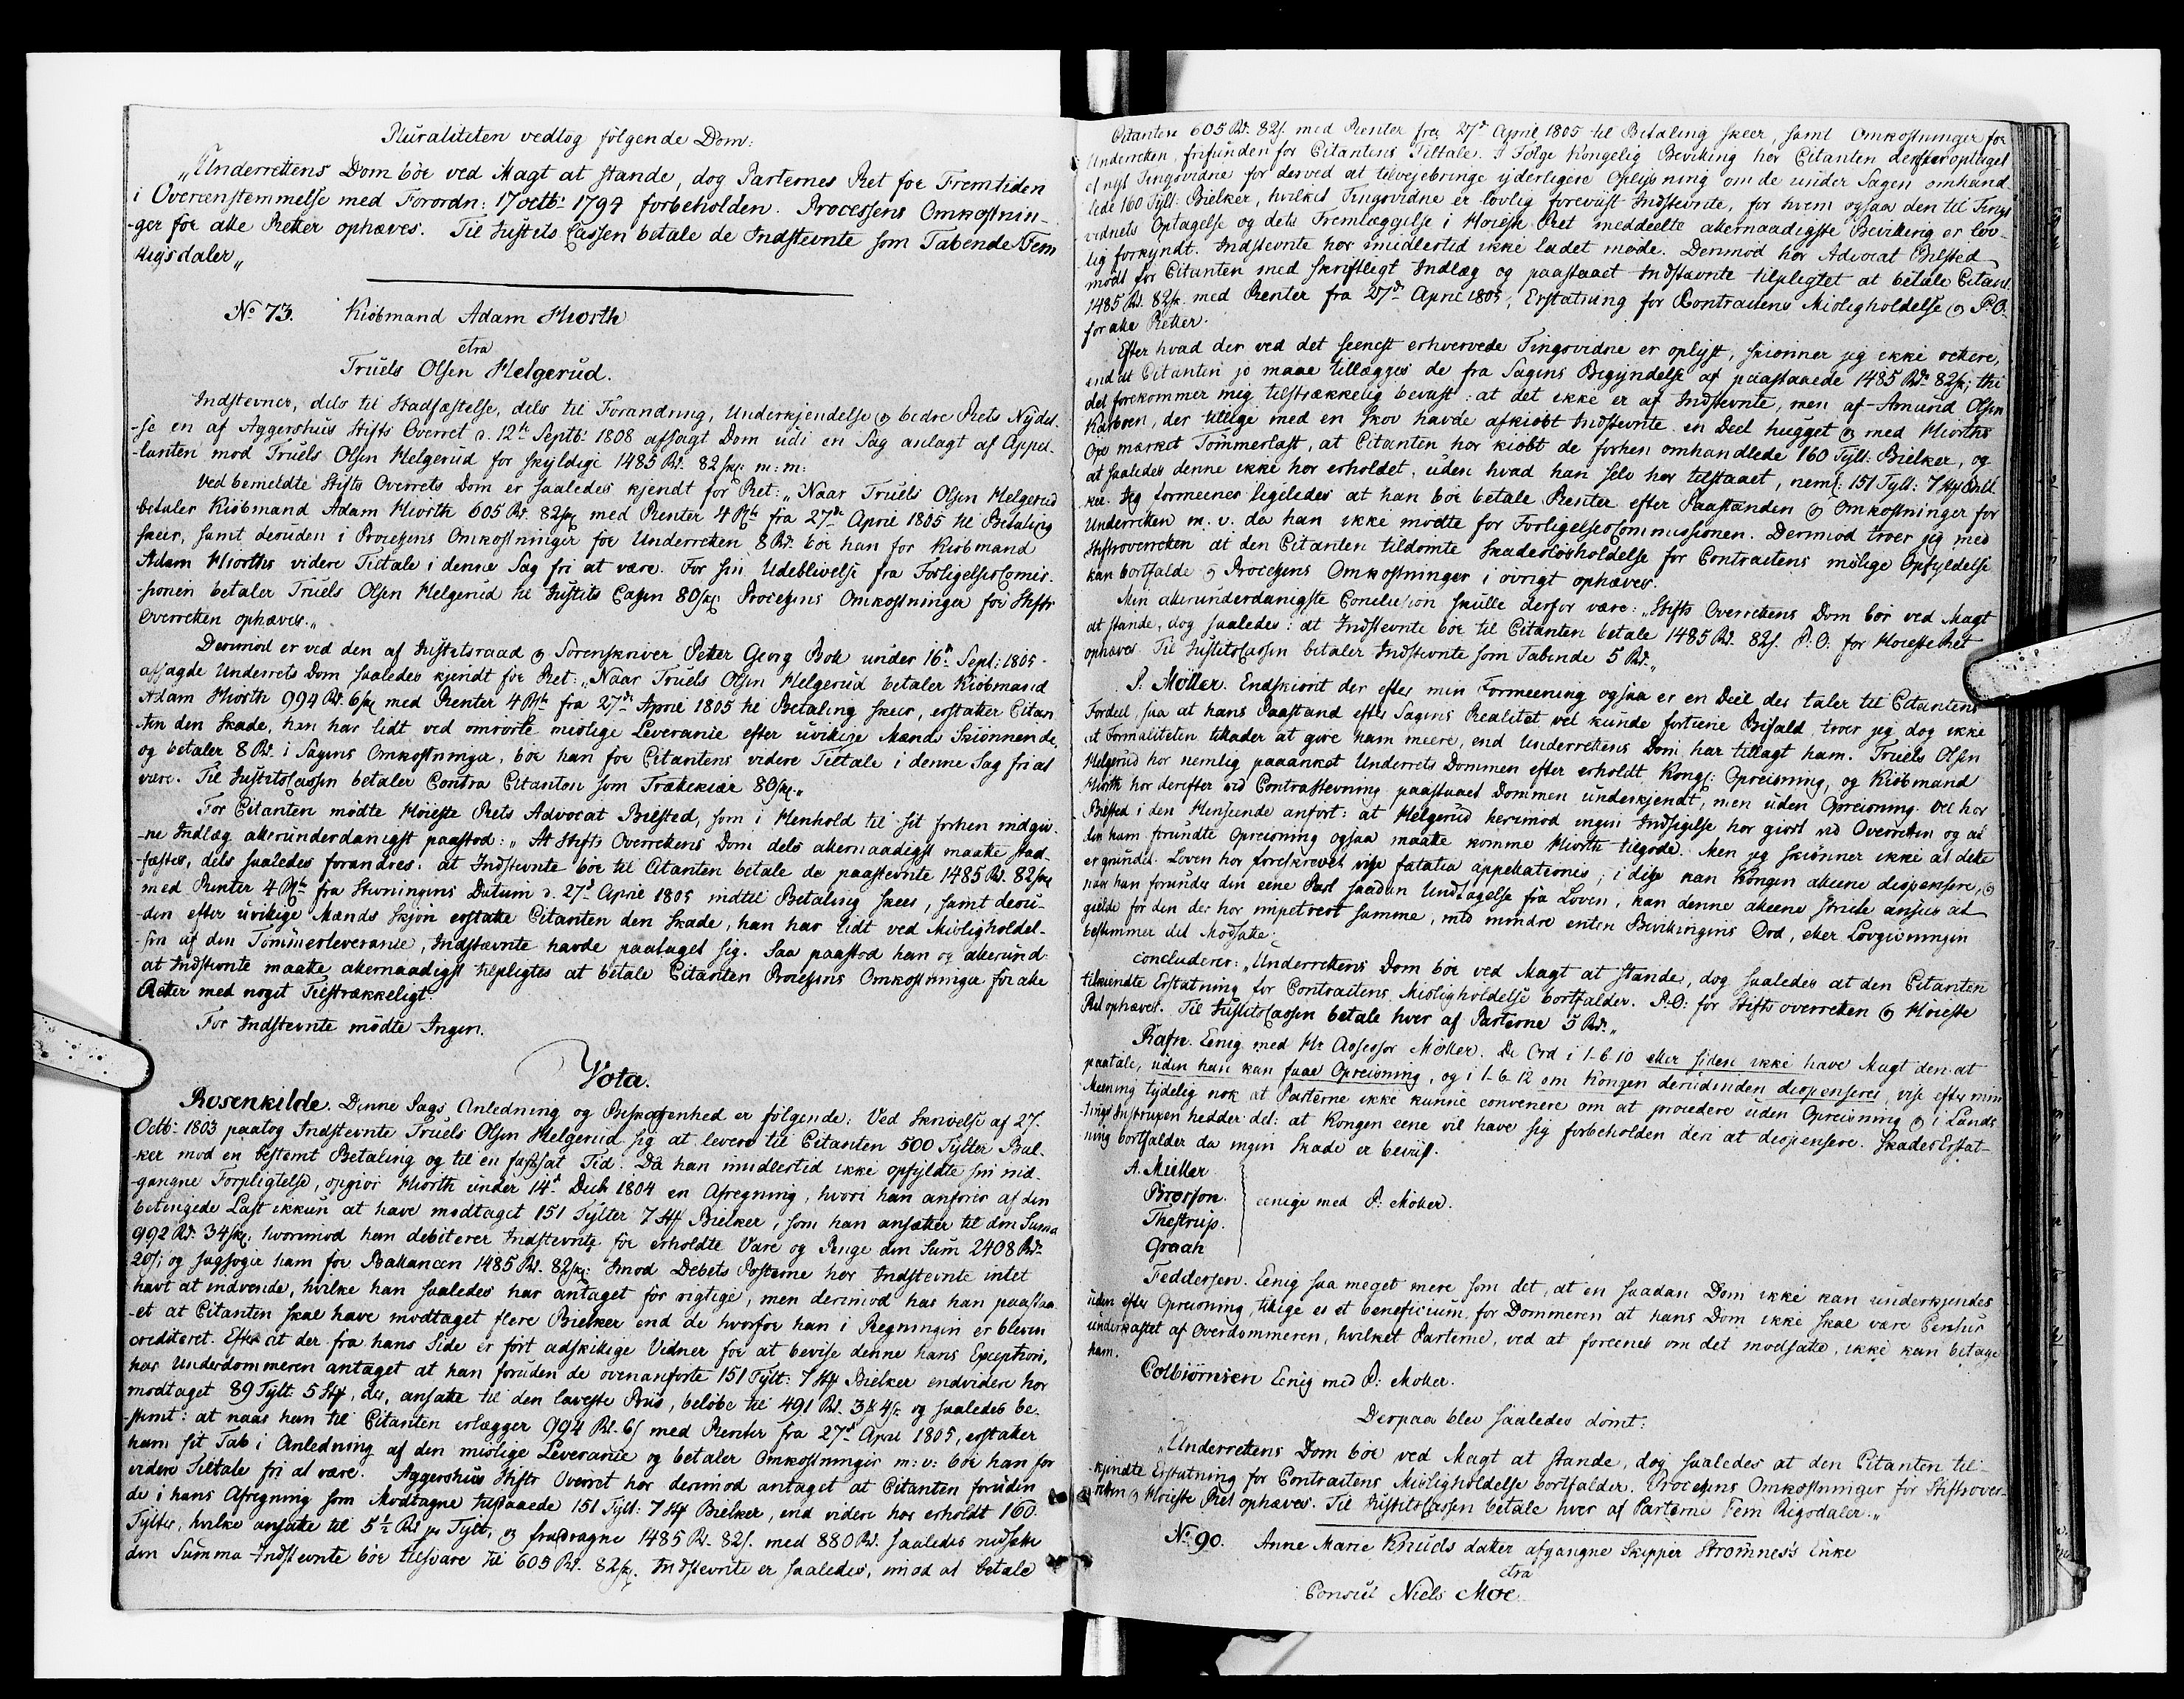 Pluraliteten vedtog følgende Dom:
„Underrettens Dom bör ved Magt at stande, dog Parternes Ret for Fremtiden
i Overeenstemmelse med Forordn: 17 octb: 1794 forbeholden. Processens Omkostnin-
-ger for alle Retter ophæves. Til Justits Cassen betale de Indstevnte som Tabende Fem
Rigsdaler„
No 73. Kiöbmand Adam Hiorth
ctra
Truels Olsen Helgerud.
Indstevner, dels til Stadfæstelse, dels til Forandring, Underkjendelse og bedre Rets Nydel-
-se en af Aggershuus Stifts Overret d. 12te Septb: 1808 afsagt Dom udi en Sag anlagt af Appel-
-lanten mod Truels Olsen Helgerud for skyldige 1485 Rd. 82 sk: m: m:
Ved bemeldte Stifts Overrets Dom er saaledes kjendt for Ret: „Naar Truels Olsen Helgerud
betaler Kiöbmand Adam Hiorth 605 Rd. 82sk med Renter 4 Pct fra 27de April 1805 til Betaling
skeer, samt desuden i Processens Omkostninger for Underretten 8 Rd. bör han for Kiöbmand
Adam Hiorths videre Tiltale i denne Sag fri at være. For sin Udeblivelse fra Forligelses Comis-
-sionen betaler Truels Olsen Helgerud til Justits Cassen 80sk. Processens Omkostninger for Stifts
Overretten ophæves.„
Derimod er ved den af Justitsraad og Sorenskriver Petter Georg Boll under 16d. Sept: 1805
afsagde Underrets Dom saaledes kjendt for Ret: „Naar Truels Olsen Helgerud betaler Kiöbmand
Adam Hiorth 994 Rd. 6sk med Renter 4 Pct fra 27de April 1805 til Betaling skeer, erstatter Citan
-ten den Skade, han har lidt ved omrörte mislige Leverance efter uvillige Mænds Skiönnende,
og betaler 8 Rd. i Sagens Omkostninger, bör han for Citantens videre Tiltale i denne Sag fri at
være. Til Justits Cassen betaler Contra Citanten som Trættekiær 80sk.„
For Citanten mödte Höieste Rets Advocat Bilsted, som i Henhold til sit forhen indgiv-
-ne Indlæg allerunderdanigst paastod: „At Stifts Overrettens Dom dels allernaadigst maatte stad-
-fæstes, dels saaledes forandres: at Indstevnte bör til Citanten betale de paastevnte 1485 Rd. 82sk
med Renter 4 Pct fra Stevningens Datum d. 27d April 1805 indtil Betaling skeer, samt desu-
-den efter uvillige Mænds Skjön erstatte Citanten den Skade, han har lidt ved Misligholdel-
-sen af den Tömmerleverance, Indstævnte havde paataget sig. Saa paastod han og allerund:
at Indstevnte maatte allernaadigst tilpligtes at betale Citanten Processens Omkostninger for alle
Retter med noget Tilstrækkeligt.
For Indstevnte mödte Ingen.
Vota.
Rosenkilde. Denne Sags Anledning og Beskaffenhed er følgende: Ved Skrivelse af 27.
Octb: 1803 paatog Indstevnte Truels Olsen Helgerud sig at levere til Citanten 500 Tylter Biel-
-ker mod en bestemt Betaling og til en fastsat Tid. Da han imidlertid ikke opfyldte sin ind-
-gangne Forpligtelse, opgiör Hiorth under 14d Decb 1804 en Afregning, hvori han anförer af den
betingede Last ikkun at have modtaget 151 Tylter 7 Stk Bielker, som han ansætter til den Suma
992 Rd. 34sk; hvorimod han debiterer Indstevnte for erholdte Vare og Penge den Sum 2408 Rd.
20s; og sagsøger ham for Ballancen 1485 Rd. 82sk: Imod Debets Posterne har Indstevnte intet
havt at indvende, hvilke han saaledes har antaget for rigtige, men derimod har han paastaa-
-et at Citanten skal have modtaget flere Bielker end de hvorfor han i Regningen er bleven
crediteret. Efter at der fra hans Side er fört adskillige Vidner for at bevise denne hans Exception,
har Underdommeren antaget at han foruden de ovenanförte 151 Tylt: 7 Stk Bielker endvidere har
modtaget 89 Tylt: 5 Stk, der, ansatte til den laveste Priis, belöbe til 491 Rd. 3 4s. og saaledes be-
-stemt: at naar han til Citanten erlægger 994 Rd. 6s med Renter fra 27d April 1805, erstatter
ham sit Tab i Anledning af den mislige Leverance og betaler Omkostninger m: v: bör han for
videre Tiltale fri at være. Aggershuus Stifts Overret har derimod antaget at Citanten foruden
de i hans Afregning som Modtagne tilstaaede 151 Tylt: 7 Stk Bielker, end videre har erholdt 160
Tylter, hvilke ansatte til 5½ Rd pr Tylt, og fradragne 1485 Rd. 82s. med 880 Rd. saaledes nedsatte
den Summa Indstevnte bör tilsvare til 605 Rd. 82sk. Indstevnte er saaledes, imod at betale
Citanten 605 Rd. 82s. med Renter fra 27d April 1805 til Betaling skeer, samt Omkostninger for
Underretten, frifunden for Citantens Tiltale. I Følge Kongelig Bevilling har Citanten derefter optaget
et nyt Tingsvidne for derved at tilvejebringe yderligere Oplysning om de under Sagen omhand-
lede 160 Tylt: Bielker, hvilket Tingsvidne er lovlig forevist Indstevnte, for hvem ogsaa den til Tings
vidnets Optagelse og dets Fremlæggelse i Höieste Ret meddeelte allernaadigste Bevilling er lov-
lig forkyndt. Indstevnte har imidlertid ikke ladet møde. Derimod har Advocat Bilsted
mödt for Citanten med skriftligt Indlæg og paastaaet Indstævnte tilpligtet at betale Citant.
1485 Rd. 82sk. med Renter fra 27d April 1805, Erstatning for Contractens Misligholdelse og P.O.
for alle Retter.
Efter hvad der ved det seenest erhvervede Tingsvidne er oplyst, skiönner jeg ikke rettere,
end at Citanten jo maae tillægges de fra Sagens Begyndelse af paastaaede 1485 Rd. 82sk; thi
det forekommer mig tilstrækkelig beviist: at det ikke er af Indstevnte, men af Amund Olsen
, der tillige med en Skov havde afkiöbt Indstevnte en Deel hugget og med Hiorths
Öxe mærket Tömmerlast, at Citanten har kiöbt de forhen omhandlede 160 Tylt: Bielker, og
at saaledes denne ikke har erholdet, uden hvad han selv har tilstaaet, neml: 151 Tylt: 7 Stk
. Jeg formeener ligeledes at han bör betale Renter efter Paastanden og Omkostninger for
Underretten m. v. da han ikke mödte for Forligelses Commissionen. Derimod troer jeg med
Stiftsoverretten at den Citanten tildömte Skadeslösholdelse for Contractens mislige Opfyldelse
kan bortfalde og Processens Omkostninger i övrigt ophæves.
Min allerunderdanigste Conclusion skulle derfor være: „Stifts Overrettens Dom bör ved Magt
at stande, dog saaledes: at Indstevnte bör til Citanten betale 1485 Rd. 82s. P.O: for Höieste Ret
ophæves. Til Justits Cassen betaler Indstevnte som Tabende 5 Rd.„
P. Möller. Endskiönt der efter min Formeening ogsaa er en Deel der taler til Citantens
Fordeel, saa at hans Paastand efter Sagens Realitet vel kunde fortiene Bifald, troer jeg dog ikke
at Formaliteten tillader at give ham meere, end Underrettens Dom har tillagt ham. Truels Olsen
Helgerud har nemlig paaanket Underrets Dommen efter erholdt Kongl: Opreisning, og Kiöbmand
Hiorth har derefter ved Contrastevning paastaaet Dommen underkjendt, men uden Opreisning. Vel har
Bilsted i den Henseende anfört: at Helgerud herimod ingen Indsigelse har giort ved Overretten og at
den ham forundte Opreisning ogsaa maatte komme Hiorth tilgode. Men jeg skiönner ikke at dette
er grundet. Loven har foreskrevet visse fatalia appellationis; i disse kan Kongen alleene dispensere, og
naar han forunder den eene Part saadan Undtagelse fra Loven, kan denne alleene ansees at
gielde for den der har impetreret samme, med mindre enten Bevillingens Ord, eller Lovgivningen
bestemmer det Modsatte.
Concluderer: „Underrettens Dom bör ved Magt at stande, dog saaledes at den Citanten
tilkiendte Erstatning for Contractens Misligholdelse bortfalder. P.O: for Stifts overretten og Höieste
Ret ophæves. Til Justits Cassen betale hver af Parterne 5 Rd.„
Rafn. Eenig med Hr Assessor Möller. De Ord i 1-6-10 eller siden ikke have Magt den at
paatale, uden han kan faae Opreisning, og i 1-6-12 om Kongen derudinden dispenserer, vise efter min
Meening tydelig nok at Parterne ikke kunne convenere om at procedere uden Opreisning og i Lands
tings Instruxen hedder det: at Kongen eene vil have sig forbeholden deri at dispensere. Skades Erstat-
ning bortfalder da ingen Skade er beviist.
A. Müller
Brorson.
Thestrup.
Graah
eenige med P: Möller.
Feddersen. Eenig saa meget mere som det, at en saadan Dom ikke kan underkjendes
uden efter Opreisning, tillige er et beneficium for Dommeren at hans Dom ikke skal være Censur
underkastet af Overdommeren, hvilket Parterne, ved at foreenes om det modsatte, ikke kan betage
ham.
Colbiörnsen Eenig med P: Möller.
Derpaa blev saaledes dömt:
„Underrettens Dom bör ved Magt at stande, dog saaledes at den Citanten til-
-kjendte Erstatning for Contractens Misligholdelse bortfalder. Processens Omkostninger for Stiftsover-
retten og Höieste Ret ophæves. Til Justits Cassen betale hver af Parterne Fem Rigsdaler.„
No 90. Anne Marie Knuds datter afgangne Skipper Strömnes's Enke
ctra
Consul Niels Moe.